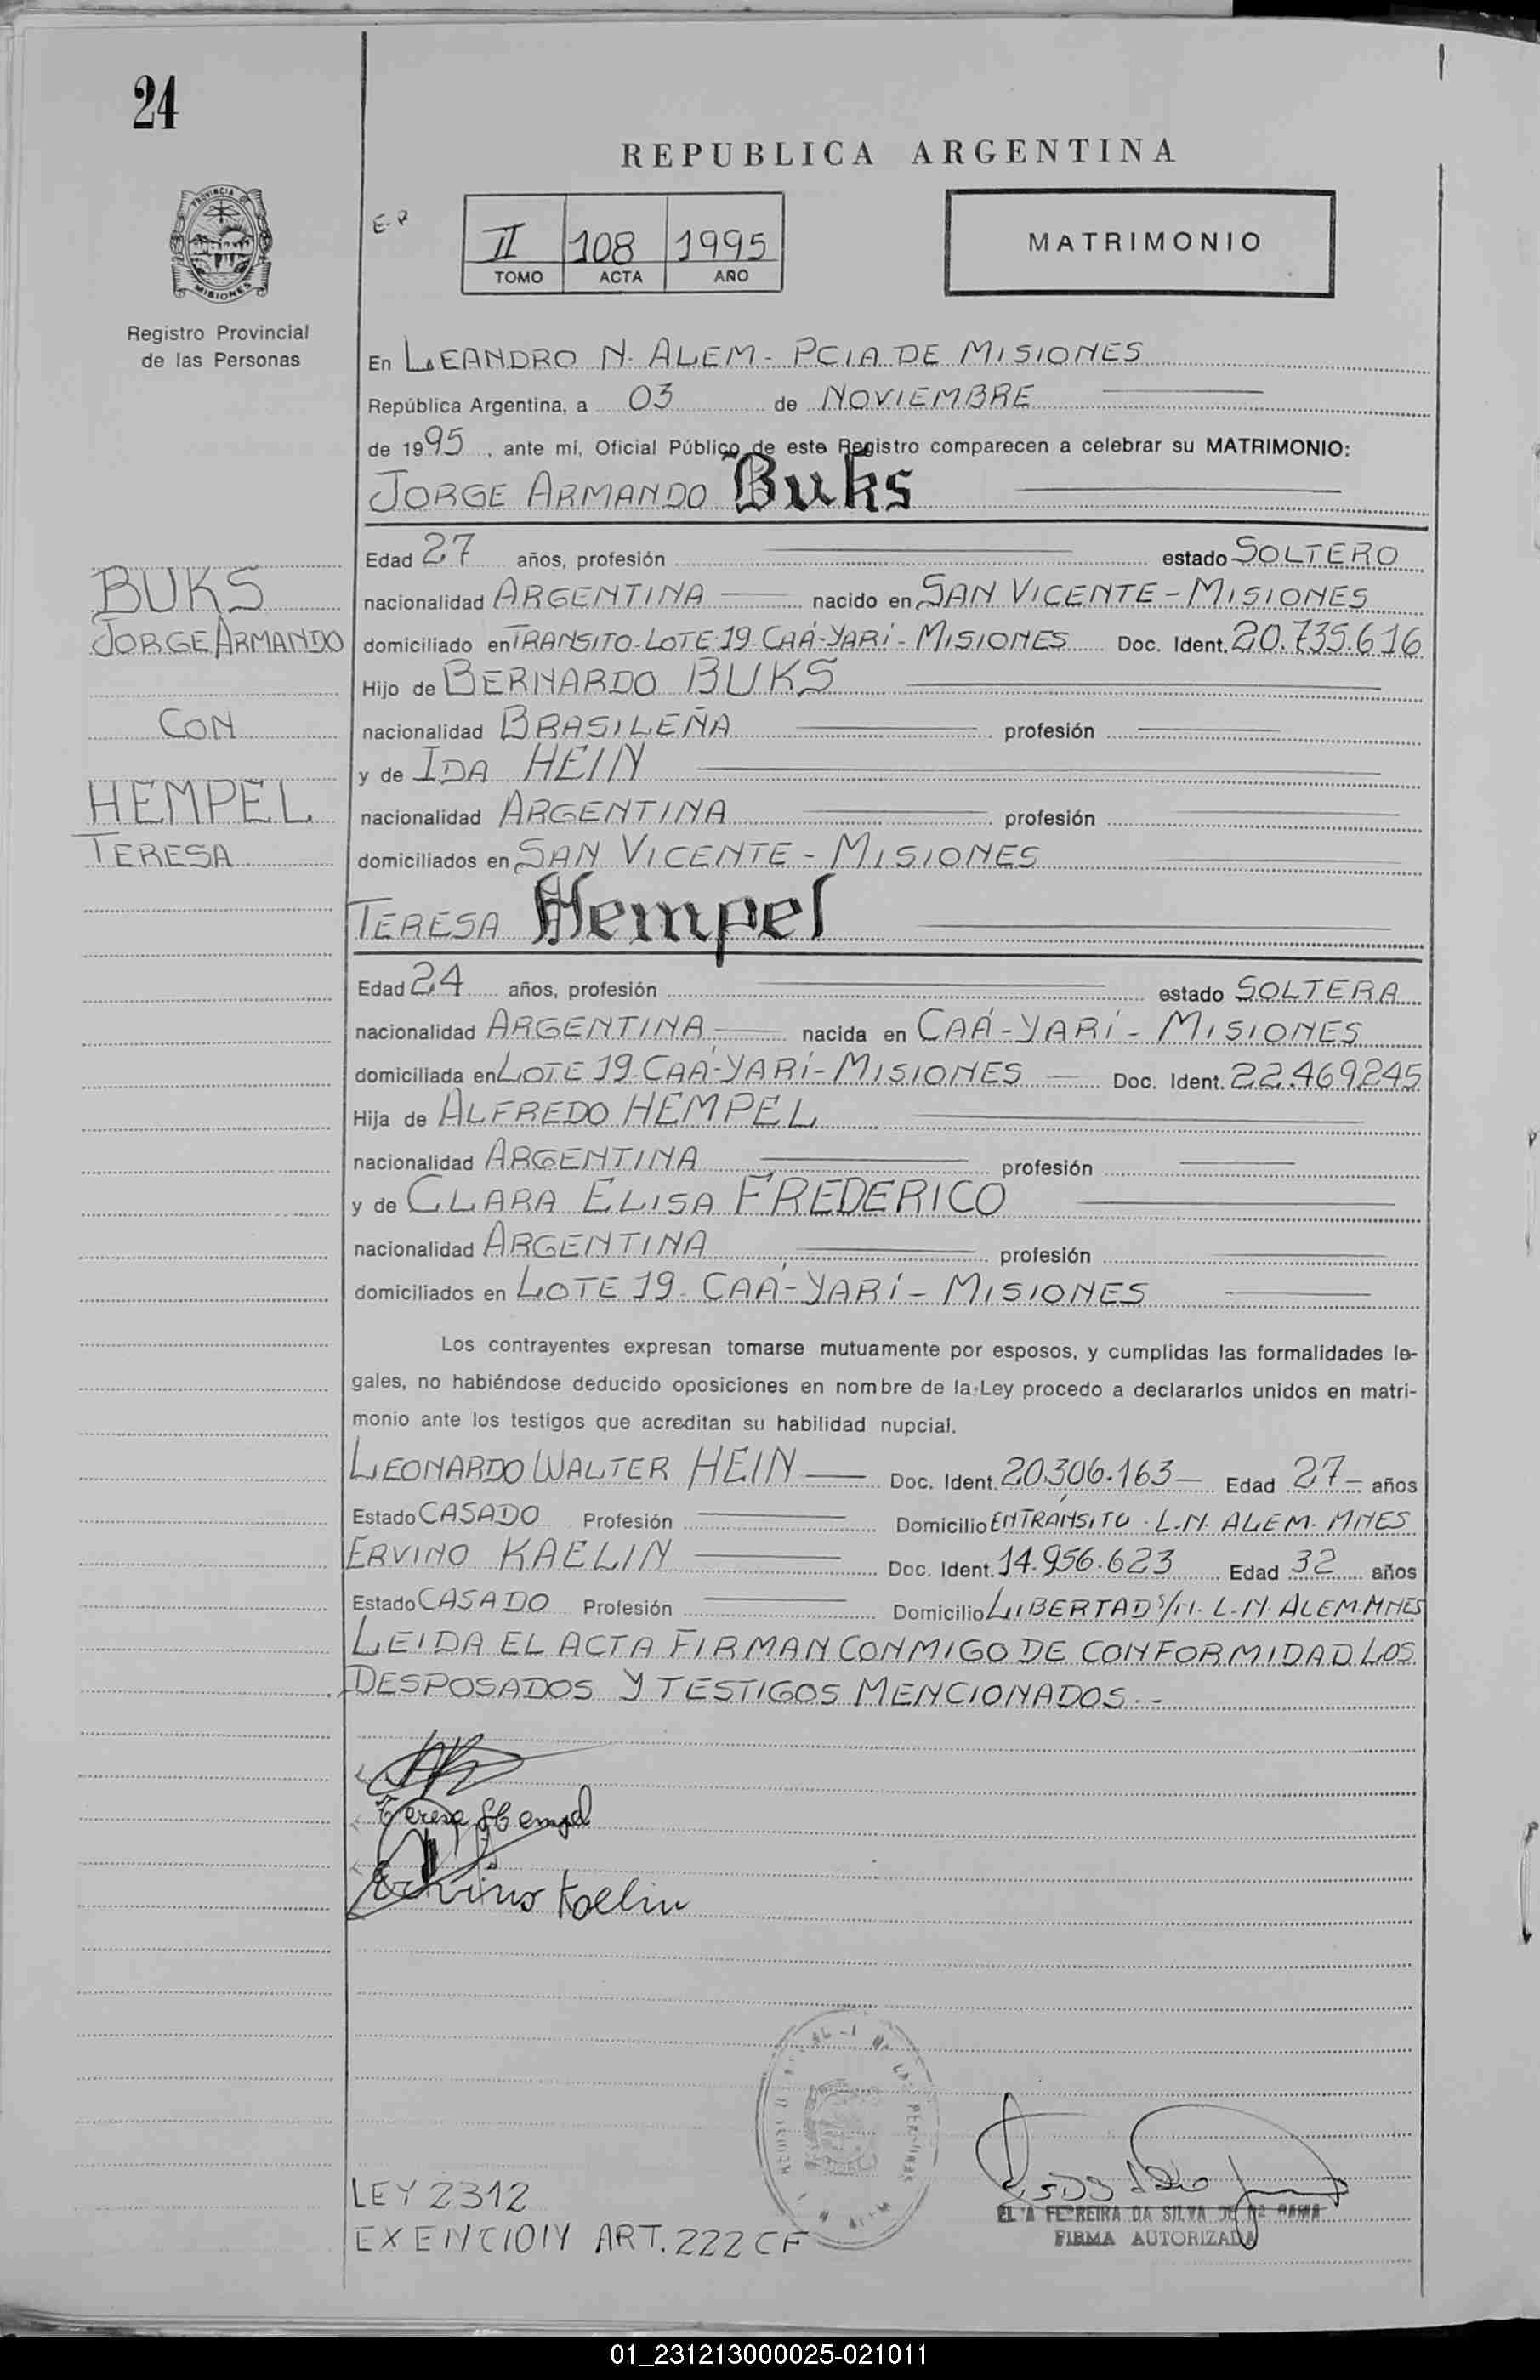 24
REPUBLICA ARGENTINA
PROVINCIA DE
MISIONES
Registro Provincial
de las Personas
E-P
II 108 1995
TOMO ACTA AÑO
MATRIMONIO
En LEANDRO N. ALEM - PCIA DE MISIONES
República Argentina, a 03 de NOVIEMBRE
de 1995, ante mí, Oficial Público de este Registro comparecen a celebrar su MATRIMONIO:
JORGE ARMANDO Buks
Edad 27 años, profesión estado SOLTERO
nacionalidad ARGENTINA nacido en SAN VICENTE - MISIONES
domiciliado en TRANSITO-LOTE-19-CAÁ-YARÍ - MISIONES Doc. Ident. 20.735.616
Hijo de BERNARDO BUKS
nacionalidad BRASILEÑA profesión
y de IDA HEIN
nacionalidad ARGENTINA profesión
domiciliados en SAN VICENTE - MISIONES
BUKS
JORGE ARMANDO
CON
HEMPEL
TERESA
TERESA Hempel
Edad 24 años, profesión estado SOLTERA
nacionalidad ARGENTINA nacida en CAÁ-YARÍ - MISIONES
domiciliada en LOTE 19-CAÁ-YARÍ-MISIONES Doc. Ident. 22.469245
Hija de ALFREDO HEMPEL
nacionalidad ARGENTINA profesión
y de CLARA ELISA FREDERICO
nacionalidad ARGENTINA profesión
domiciliados en LOTE 19- CAÁ-YARÍ - MISIONES
Los contrayentes expresan tomarse mutuamente por esposos, y cumplidas las formalidades le-
gales, no habiéndose deducido oposiciones en nombre de la Ley procedo a declararlos unidos en matri-
monio ante los testigos que acreditan su habilidad nupcial.
LEONARDO WALTER HEIN Doc. Ident. 20.306.163 Edad 27 años
Estado CASADO Profesión Domicilio EN TRÁNSITO - L.N. ALEM- MNES
ERVINO KAELIN Doc. Ident. 14.956.623 Edad 32 años
Estado CASADO Profesión Domicilio LIBERTAD S/N- L-N-ALEM.MNES
LEIDA EL ACTA FIRMAN CONMIGO DE CONFORMIDAD LOS
DESPOSADOS Y TESTIGOS MENCIONADOS.-
Teresa Hempel
Ervino Kaelin
FERREIRA DA SILVA DE
FIRMA AUTORIZADA
LEY 2312
EXENCION ART. 222 CF
01_231213000025-021011